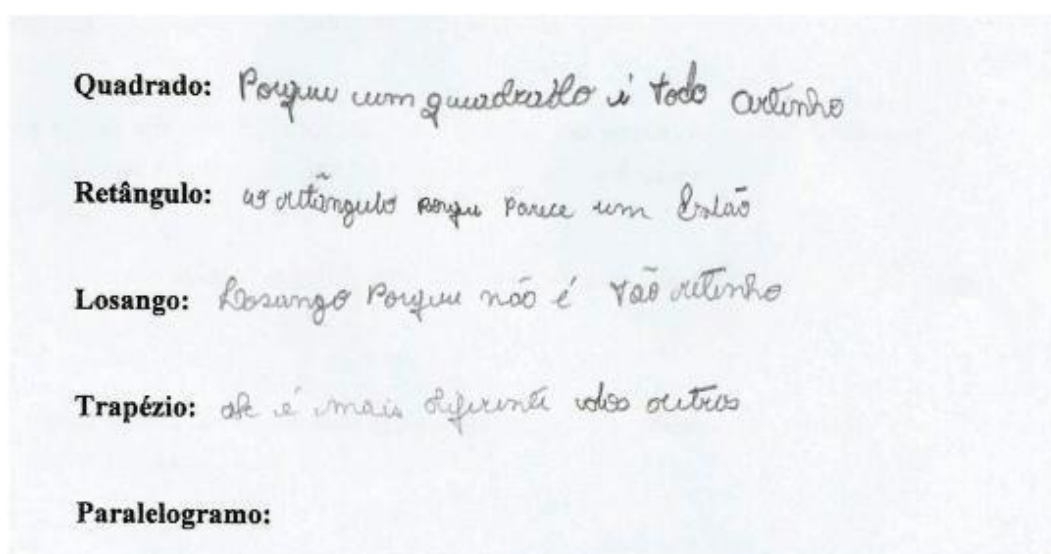 Quadrado: Porque um quadrado é todo retinho
Retângulo: retângulo porque parece um
Losango: Losango Porque não é tão retinho
Trapézio: é mais diferente dos outros
Paralelogramo: